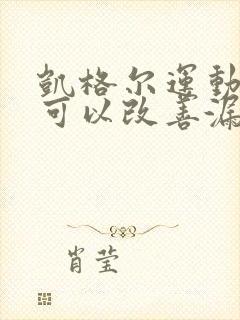 凱格尔運動
可以改善漏
肖莹